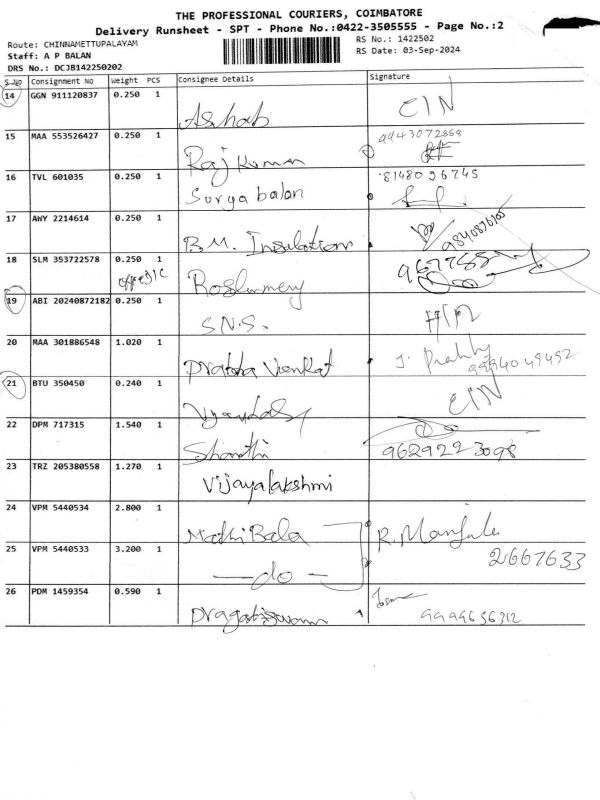 THE PROFESSIONAL COURIERS, COIMBATORE
Delivery Runsheet - SPT - Phone No.:0422-3505555 - Page No.:2
Route: CHINNAMETTUPALAYAM
RS No.: 1422502
Staff: A P BALAN
RS Date: 03-Sep-2024
DRS No.: DCJB142250202
S.No Consignment No Weight PCS Consignee Details Signature
14 GGN 911120837 0.250 1 Ashab
15 MAA 553526427 0.250 1 Raj Kumar
16 TVL 601035 0.250 1 Surya balan 8148096745
17 AWY 2214614 0.250 1 B.M. Insulation
18 SLM 353722578 0.250 1
19 ABI 20240872182 0.250 1 S.N.S.
20 MAA 301886548 1.020 1 Prabha Venkat 9994049492
21 BTU 350450 0.240 1
22 DPM 717315 1.540 1 Shanthi 9629223098
23 TRZ 205380558 1.270 1 Vijayalakshmi
24 VPM 5440534 2.800 1 Mathi Bala R. Manjula
2667633
25 VPM 5440533 3.200 1 — do —
26 PDM 1459354 0.590 1